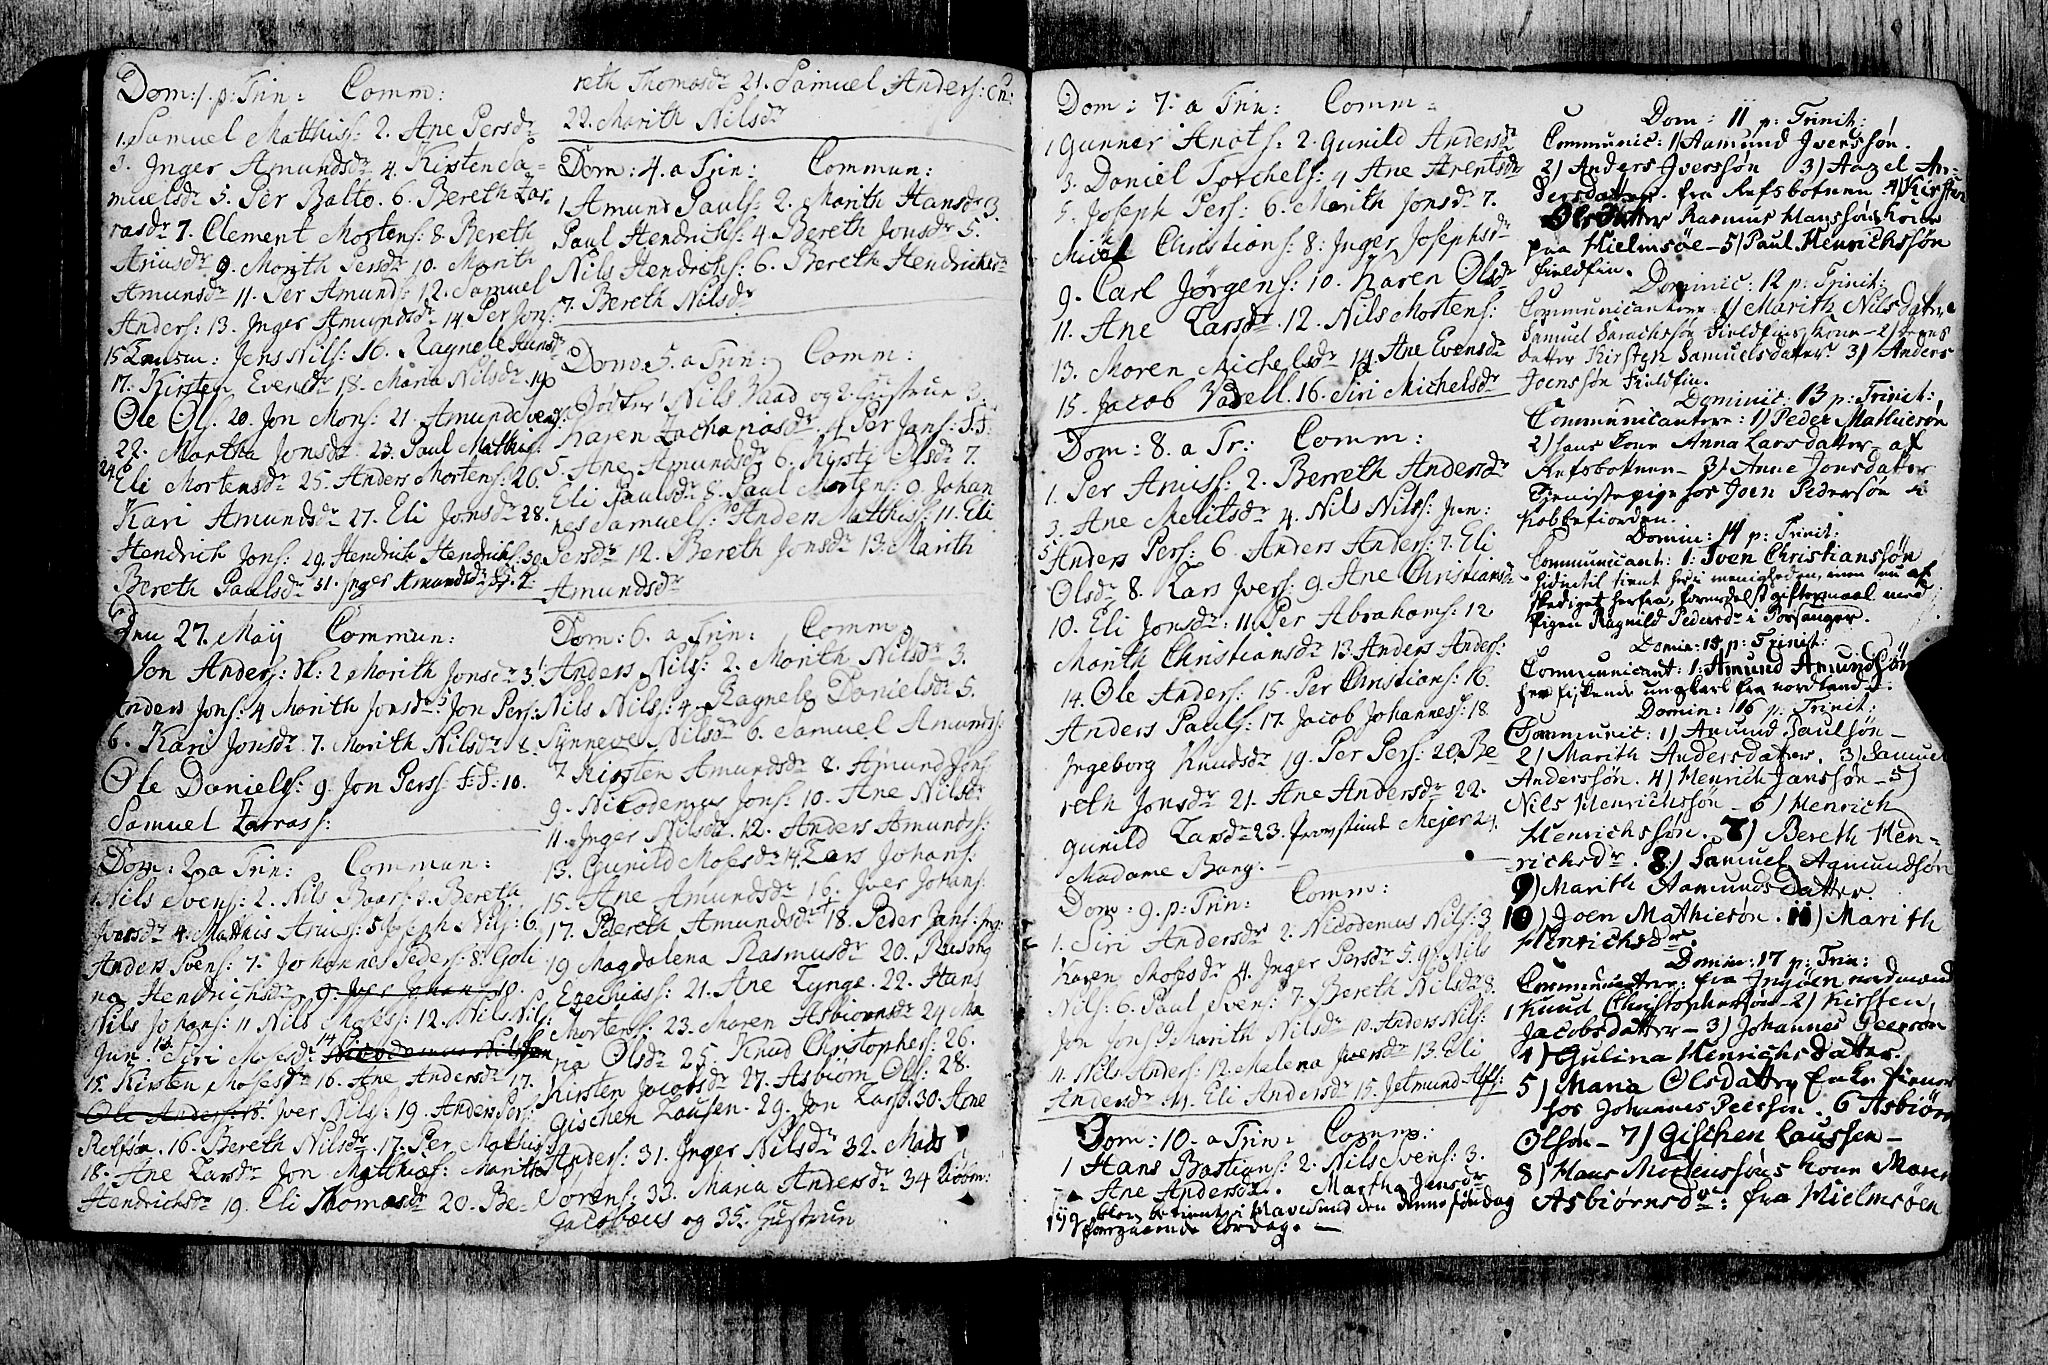 Dom: 1. p: Trin: Comm:
1. Samuel Matthiss: 2. Ane Persdr
3. Inger Amundsdr 4. Kirsten Sa=
muelsdr 5. Per Balto. 6. Bereth Lar-
rasdr 7. Clement Mortens: 8. Bereth
Ariusdr 9. Marith Persdr 10. Marith
Amunsdr 11. Per Amunds: 12. Samuel
Anders: 13. Inger Amundsdr 14. Per Jons:
15 Jens Nils: 16. Ragnele
17. Kirsten Evensdr 18. Maria Nilsdr 19
Ole Ols: 20. Jon Mons: 21. Amund
22. Martha Jonsdr 23. Paul Mathiss:
24 Eli Mortensdr 25. Anders Mortens: 26.
Kari Amundsdr 27. Eli Jonsdr 28.
Hendrich Jons: 29. Hendrich Hendrichs: 30
Bereth Paulsdr 31. Inger Amundsdr
Den 27. May Commun:
Jon Anders: 2 Morith Jonsdr 3.
Anders Jons: 4 Morith Jonsdr 5. Jon Pers:
6. Kari Jonsdr 7. Morith Nilsdr 8.
Ole Daniels: 9. Jon Pers: F:F: 10.
Samuel Larras:
Dom: 2. a Trin: Commun:
Nils Svens: 2. Nils Baars: 3. Bereth
Iversdr 4. Matthis Arius: 5 Joseph Nils: 6.
Anders Svens: 7. Johannes Peders: 8. Goli
na Hendrichsdr 9. 10.
Nils Johans: 11 Nils Moses: 12. Nils Nils:
Jun: 13 Siri Mosesdr 14 Nicodemus Nilssen
15. Kirsten Mosesdr 16. Ane Andersdr 17.
Ole Anders: 18. Iver Nils: 19. Anders Pers:
16. Bereth Nilsdr 17. Per Mathis:
18. Ane Larsdr Jon Matthias: Marith
Hendrichsdr 19. Eli Thomasdr 20. Be-
reth Thomasdr 21. Samuel Anders:
22. Marith Nilsdr
Dom: 4. a Trin: Commun:
1 Amund Pauls: 2. Marith Hansdr 3.
Paul Hendrichs: 4. Bereth Jonsdr 5.
Nils Hendrichs: 6. Bereth Hendrichsdr
7. Bereth Nilsdr
Dom: 5. a Trin: Comm:
1 Nils Vaad og 2. Hustrue 3.
Karen Zachariasdr 4 Per Jans: F:F:
5. Ane Amundsdr 6. Kirsti Olsdr 7.
Eli Paulsdr 8. Paul Mortens: 9. Johan
nes Samuels: 10 Anders Matthis: 11. Eli
Persdr 12. Bereth Jonsdr 13. Marith
Amundsdr
Dom: 6. a Trin: Comm
1. Anders Nils: 2. Morith Nilsdr 3.
Nils Nils: 4. Ragnele Danielsdr 5.
Synneve Nilsdr 6. Samuel Amunds:
7. Kirsten Amundsdr 8. Amund Jons
9. Nicodemus Jons: 10. Ane Nilsdr
11. Inger Nilsdr. 12. Anders Amunds:
13. Gunild Mosesdr 14. Lars Johans:
15. Ane Amundsdr 16. Iver Johans:
17. Bereth Amundsdr 18. Peder Jans:
19 Magdalena Rasmusdr 20.
Ezechias: 21. Ane Lynge. 22. Hans
Mortens: 23. Maren Asbiørnsdr 24 Ma
ria Olsdr 25. Knud Christophers: 26.
Kirsten Jacobsdr 27. Asbiørn Ols: 28.
Gischen Lausen. 29. Jon Lars: 30. Ane
Anders: 31. Inger Nilsdr 32. Mads
Sørens: 33. Maria Andersdr 34 Kiøbm:
Jacobæus og 35. Hustrue
Dom: 7. a Trin: Comm:
1 Gunner Knots: 2. Gunild Andersdr
3. Daniel Torchels: 4 Ane Arentsdr
5. Joseph Pers: 6. Merith Jonsdr 7.
Michel Christians: 8. Inger Josephsdr
9. Carl Jørgens: 10. Karen Olsdr
11. Ane Larsdr 12. Nils Mortens:
13. Moren Michelsdr 14. Ane Evensdr
15. Jacob Vadell. 16. Siri Michelsdr
Dom: 8. a Tr: Comm:
1. Per Ariuss: 2. Berreth Andersdr
3. Ane Melitsdr 4. Nils Nils: Jun:
5 Anders Pers: 6. Anders Anders: 7. Eli
Olsdr 8. Lars Ivers: 9. Ane Christiansdr
10. Eli Jonsdr 11 Per Abrahams: 12
Marith Christiansdr 13 Anders Anders:
14. Ole Anders: 15. Per Christians: 16.
Anders Pauls: 17. Jacob Johannes: 18
Ingeborg Knudsdr 19. Per Pers: 20. Be
reth Jonsdr 21. Ane Andersdr 22.
Gunild Larsdr 23. Provstinde Mejer 24.
Madame Bang.
Dom: 9. p: Trin: Comm:
1. Siri Andersdr 2. Nicodemus Nils: 3
Karen Mosesdr 4. Inger Persdr 5. Nils
Nils: 6. Paul Svens: 7. Bereth Nilsdr 8.
Jon Jons: 9 Marith Nilsdr 10. Anders Nils:
11. Nils Anders: 12. Malena Iversdr 13. Eli
Andersdr 14. Eli Andersdr 15. Jetmund Alfs:
Dom: 10. a Trin: Comm:
1 Hans Bastians: 2. Nils Svens: 3.
Ane Andersdr. Martha Jensdr
blev betient i Havesund den Anno søndag
foregaaende Lørdag. —
Dom: 11 p: Trinit:
Communic: 1) Aamund Iverssøn.
2) Anders Iverssøn 3) Aazel An-
dersdatter. fra Refsbotnen 4) Kirsten
Olsdatter Rasmus Hanssøns Kone
paa Hielmsøe — 5) Paul Henrichssøn
fieldfin.
Dominic: 12 p: Trinit:
Communicantere: 1) Marith Nilsdatter
Samuel Sarachssøn fieldfins kone — 2)
datter Kirsten Samuelsdatter 3) Anders
Joenssøn fieldfin.
Dominic: 13 p: Trinit:
Communicantere: 1) Peder Mathiesøn
2) hans kone Anna Larsdatter af
Refsbotnen — 3) Anne Jonsdatter
Tienistepige hos Joen Pedersøn i
Kobbefiorden.
Domin: 14 p: Trinit:
Communicant: 1: Joen Christianssøn
hidintil tient her i menigheden, men nu af
skediget herfra, formedelst giftermaal med
Pigen Ragnild Pedersdr i Porsanger.
Domin: 15 p: Trinit:
Communicant: 1: Amund Amundssøn
her fiskende ungkarl fra nordland
Domin: 16 p: Trinit:
Communic: 1) Amund Paulsøn —
2) Marith Andersdatter. 3) Samuel
Anderssøn. 4) Henrich Janssøn — 5)
Nils Henrichssøn — 6) Henrich
Henrichssøn. 7) Bereth Hen-
richsdr. 8) Samuel Agmundssøn
9) Marith Aamundsdatter.
10) Joen Mathiesøn. 11) Marith
Henrichsdr.
Domin: 17 p: Trin:
Communicantere: fra Ingøen nordmænd
1 Knud Christophersøn — 2) Kirsten
Jacobsdatter — 3) Johannes Peersøn
4) Gulina Henrichsdatter.
5) Maria Olsdatter Enke tiener
hos Johannes Peersøn. 6 Asbiørn
Olsøn — 7) Gischen Laussen —
8) Hans Mortenssøns kone Maren
Asbiørnsdr: fra Hielmsøen